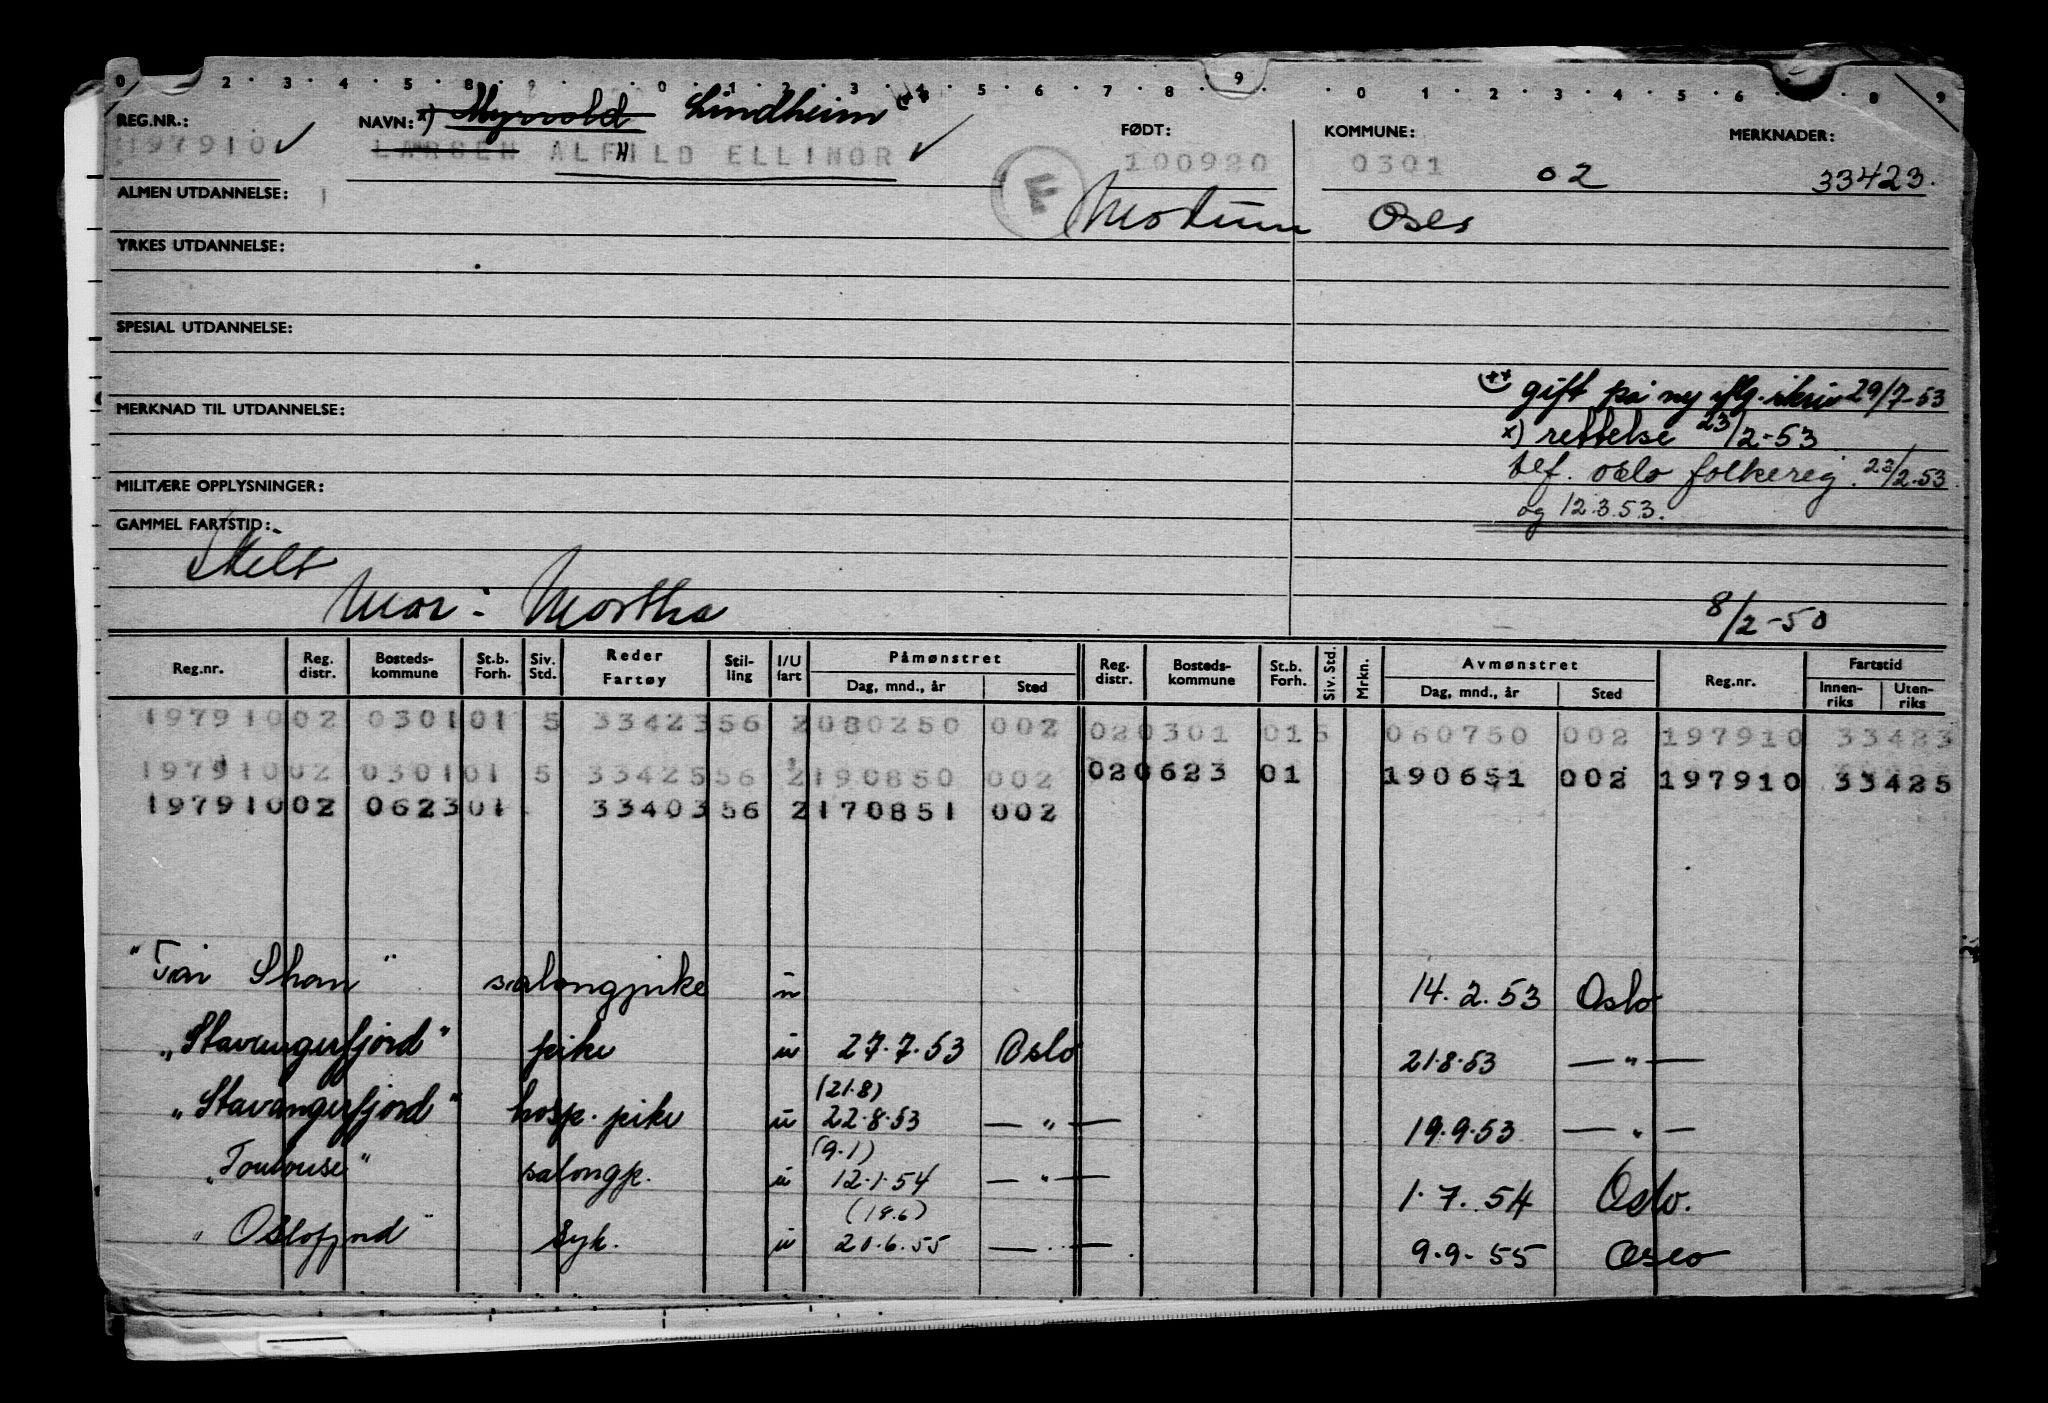 0 2 3 4 5 8 9 0 1 2 3 4 5 6 7 8 9 0 1 2 3 4 5 6 8 9
REG.NR.: NAVN: x) Myrvold Lindheim ++ FØDT: KOMMUNE: MERKNADER:
197910 LARSEN ALFHILD ELLINOR F 100920 0301 02 33423.
ALMEN UTDANNELSE: Modum Oslo
YRKES UTDANNELSE:
SPESIAL UTDANNELSE:
++ gift på ny iflg. skriv 29/7-53
MERKNAD TIL UTDANNELSE:
x) rettelse 23/2-53
tlf. oslo folkereg. 23/2.53
MILITÆRE OPPLYSNINGER:
og 12.3.53.
GAMMEL FARTSTID:
Skilt
Mor: Martha 8/2-50
Reg.nr. Reg. distr. Bosteds-kommune St.b. Forh. Siv. Std. Reder Fartøy Stil-ling I/U fart Påmønstret Dag, mnd., år Sted Reg. distr. Bosteds-kommune St.b. Forh. Siv. Std. Mrkn. Avmønstret Dag, mnd., år Sted Reg.nr. Fartstid Innen-riks Uten-riks
197910 02 0301 01 5 33423 56 2 080250 002 02 0301 01 5 060750 002 197910 33423
197910 02 0301 01 5 33425 56 2 190850 002 02 0623 01 190651 002 197910 33425
197910 02 0623 01 33403 56 2 170851 002
"Tai Shan" salongpike u 14.2.53 Oslo
"Stavangerfjord" pike u 27.7.53 Oslo 21.8.53 — " —
(21.8)
"Stavangerfjord" hosp. pike u 22.8.53 — " — 19.9.53 — " —
(9.1)
"Toulouse" salongp. u 12.1.54 — " — 1.7.54 Oslo.
(18.6)
"Oslofjord" syk. u 20.6.55 — " — 9.9.55 Oslo